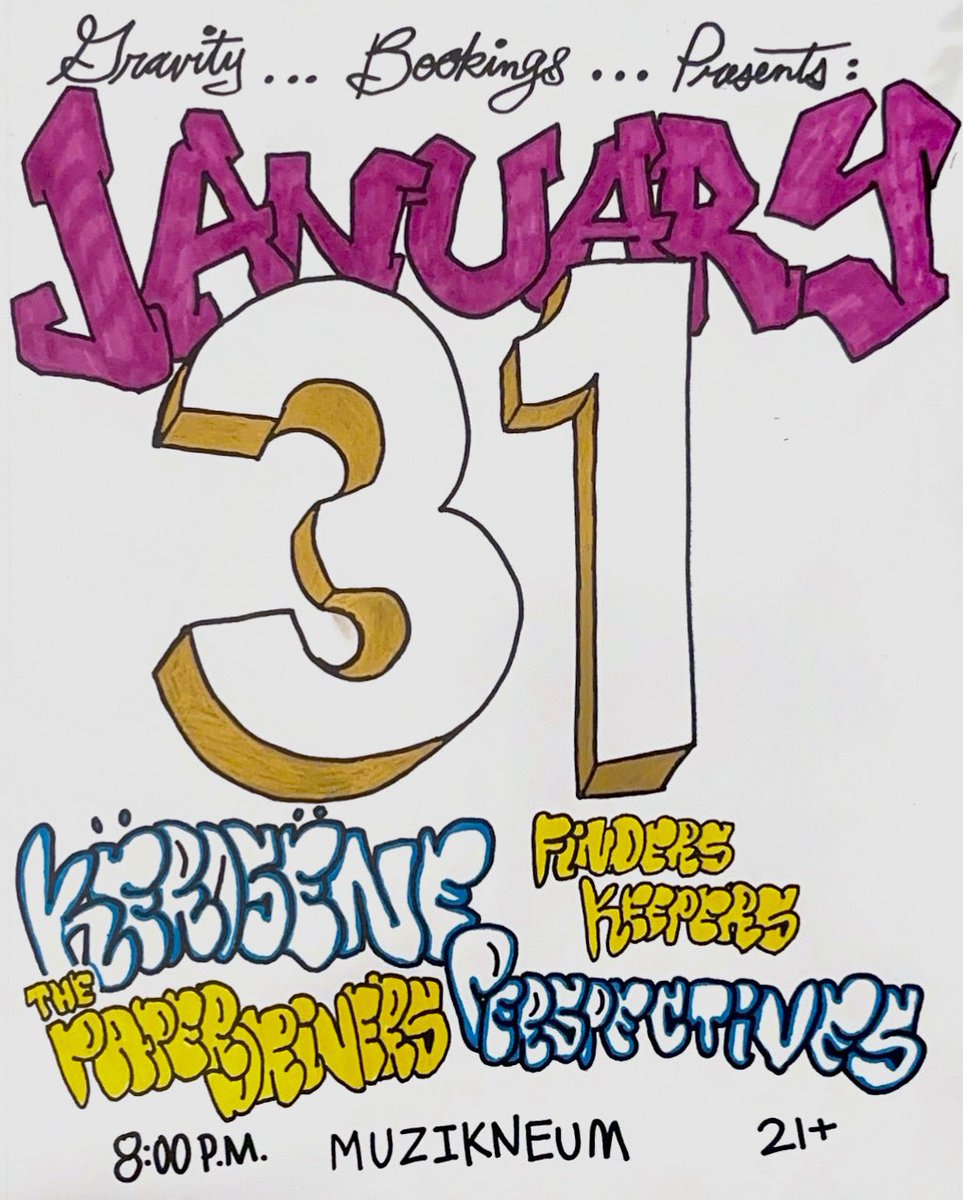 Gravity... Bookings... Presents:
JANUARY
31
KËROSËNE
FiNDERS
KEEPERS
THE
PAPER DRiVERS
PERSPECTiVES
8:00 P.M. MUZIKNEUM 21+